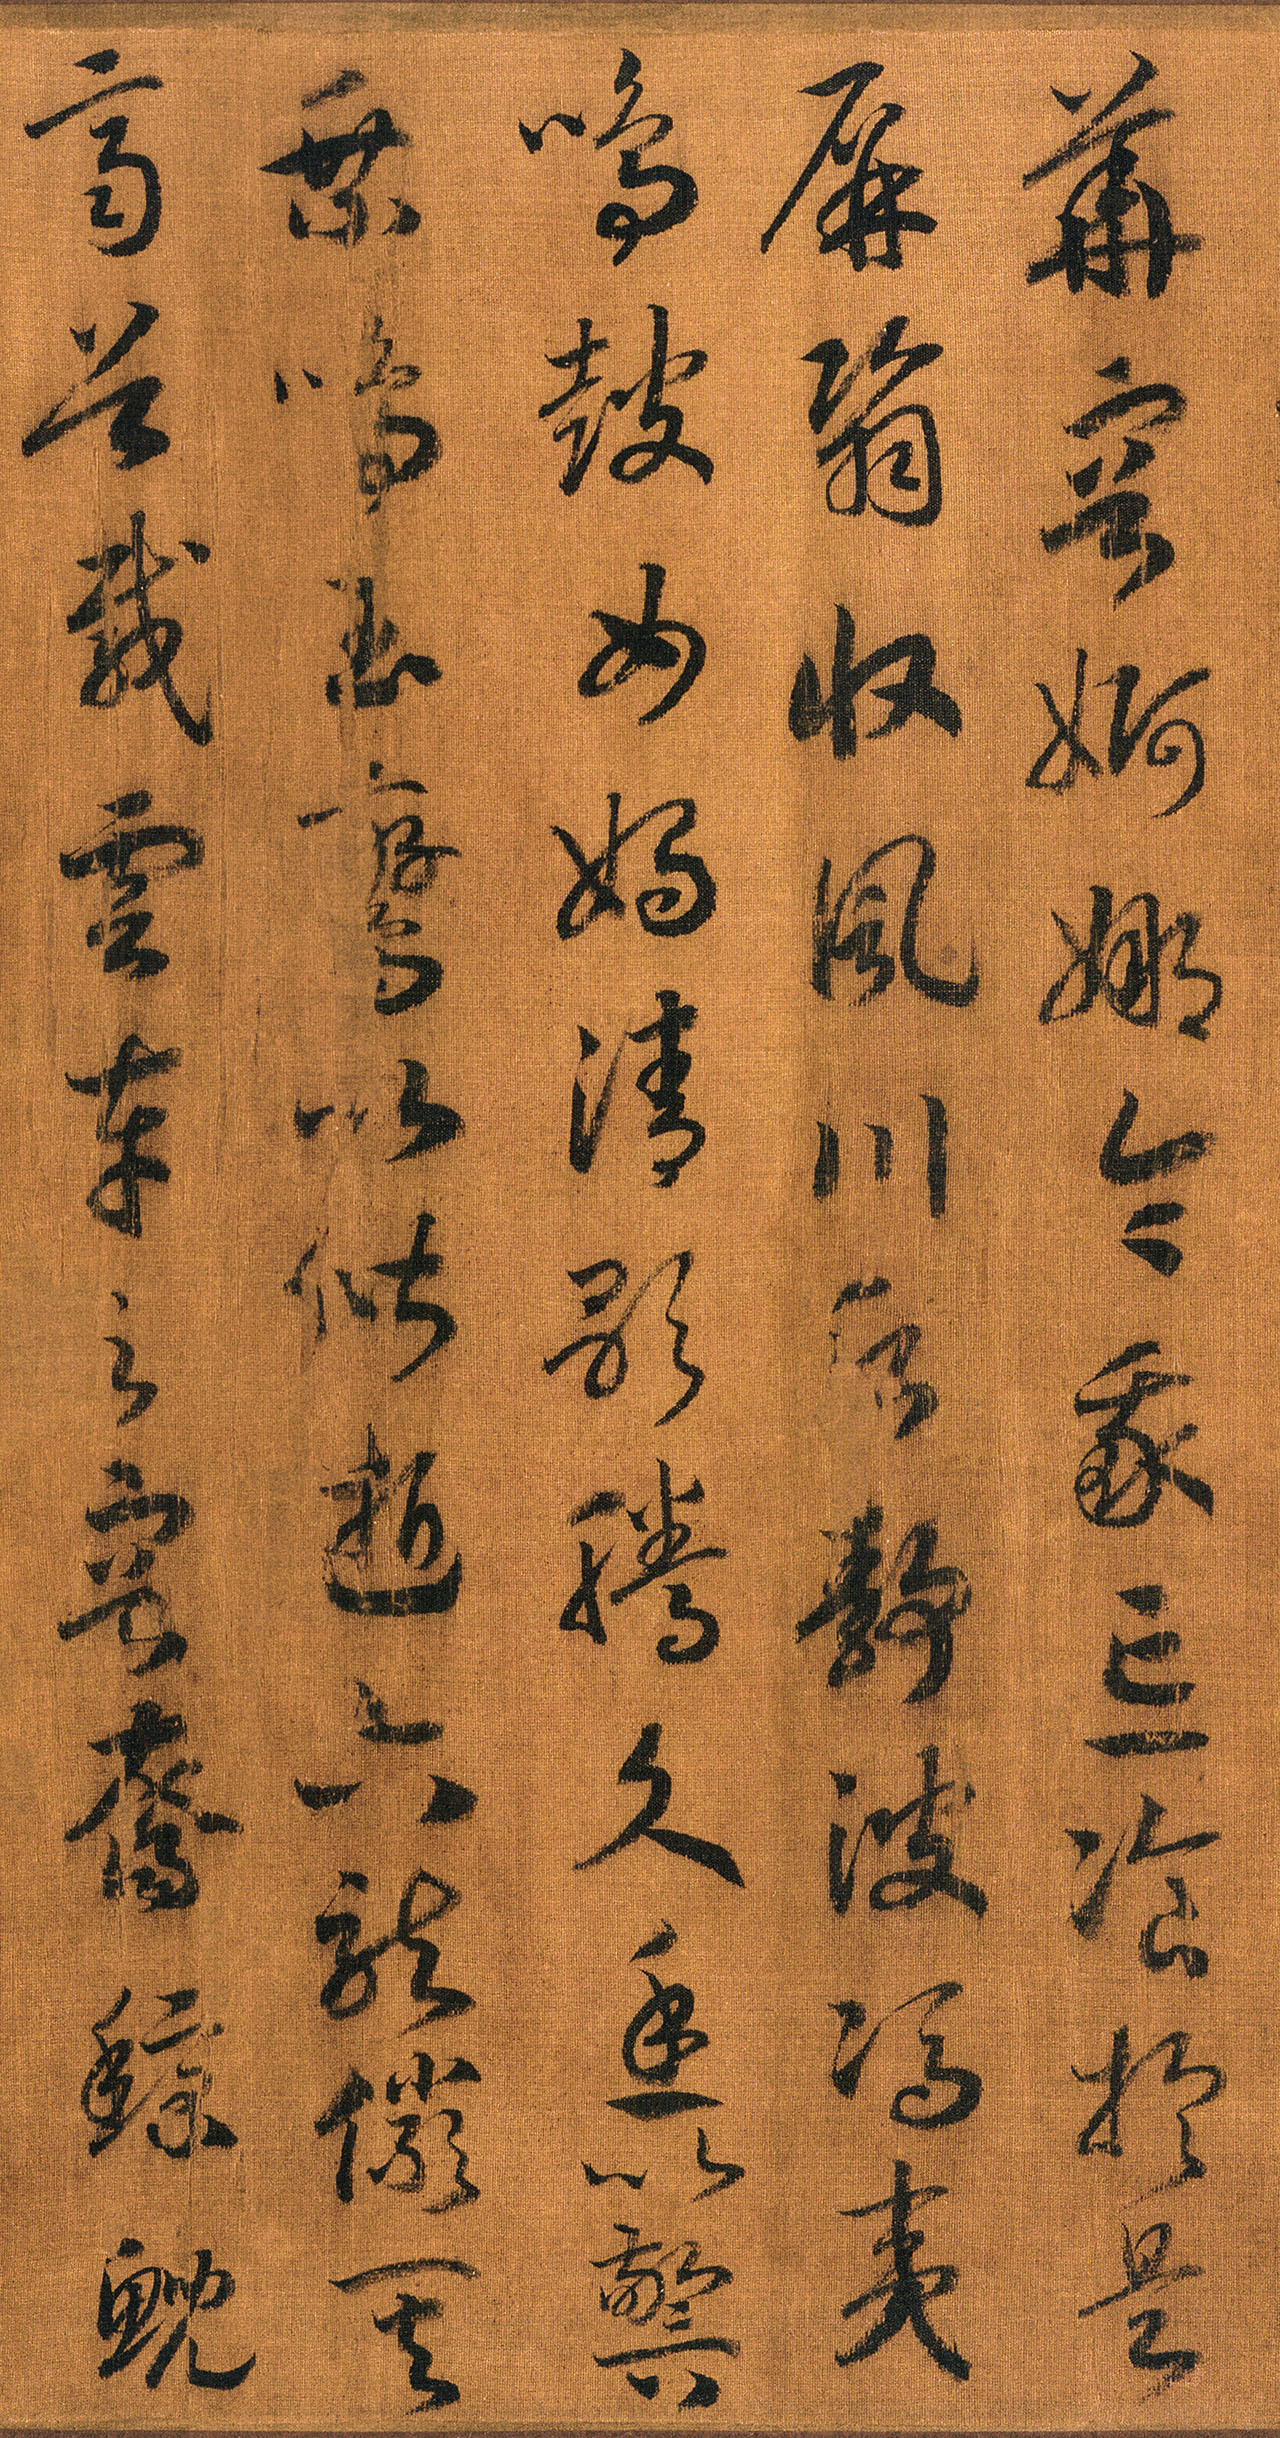 華容婀娜令我忘飡於是
屏翳收風川后靜波馮夷
鳴鼓女媧清歌騰文魚以警
乘鳴玉鸞以偕逝六龍儼其
齊首載雲車之容裔鯨鯢